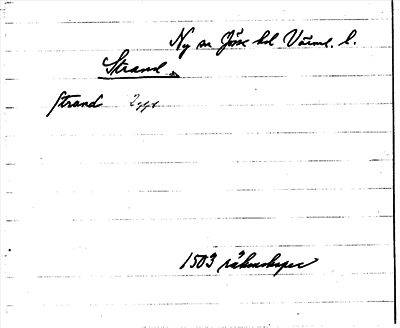 Ny sn Jösse hd Värml. l.
Strand
Strand
1503 räkenskaper